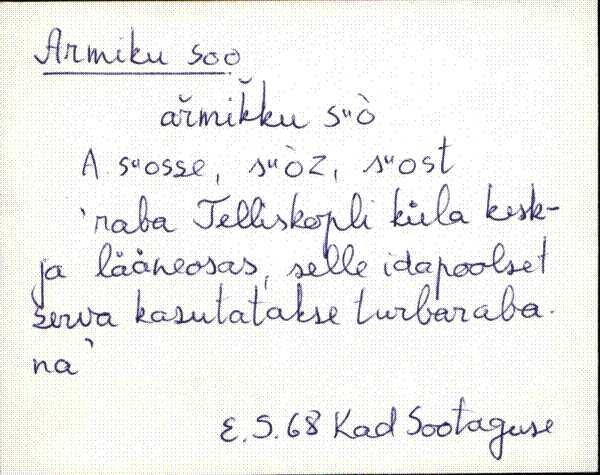 Armiku soo
ař̆mik̆ku sᵘò
A sᵘosse, sᵘòz, sᵘost
ˋraba Telliskopli küla kesk-
ja lääneosas, selle idapoolset
serva kasutatakse turbaraba-
naˋ
E.S.68 Kad Sootaguse